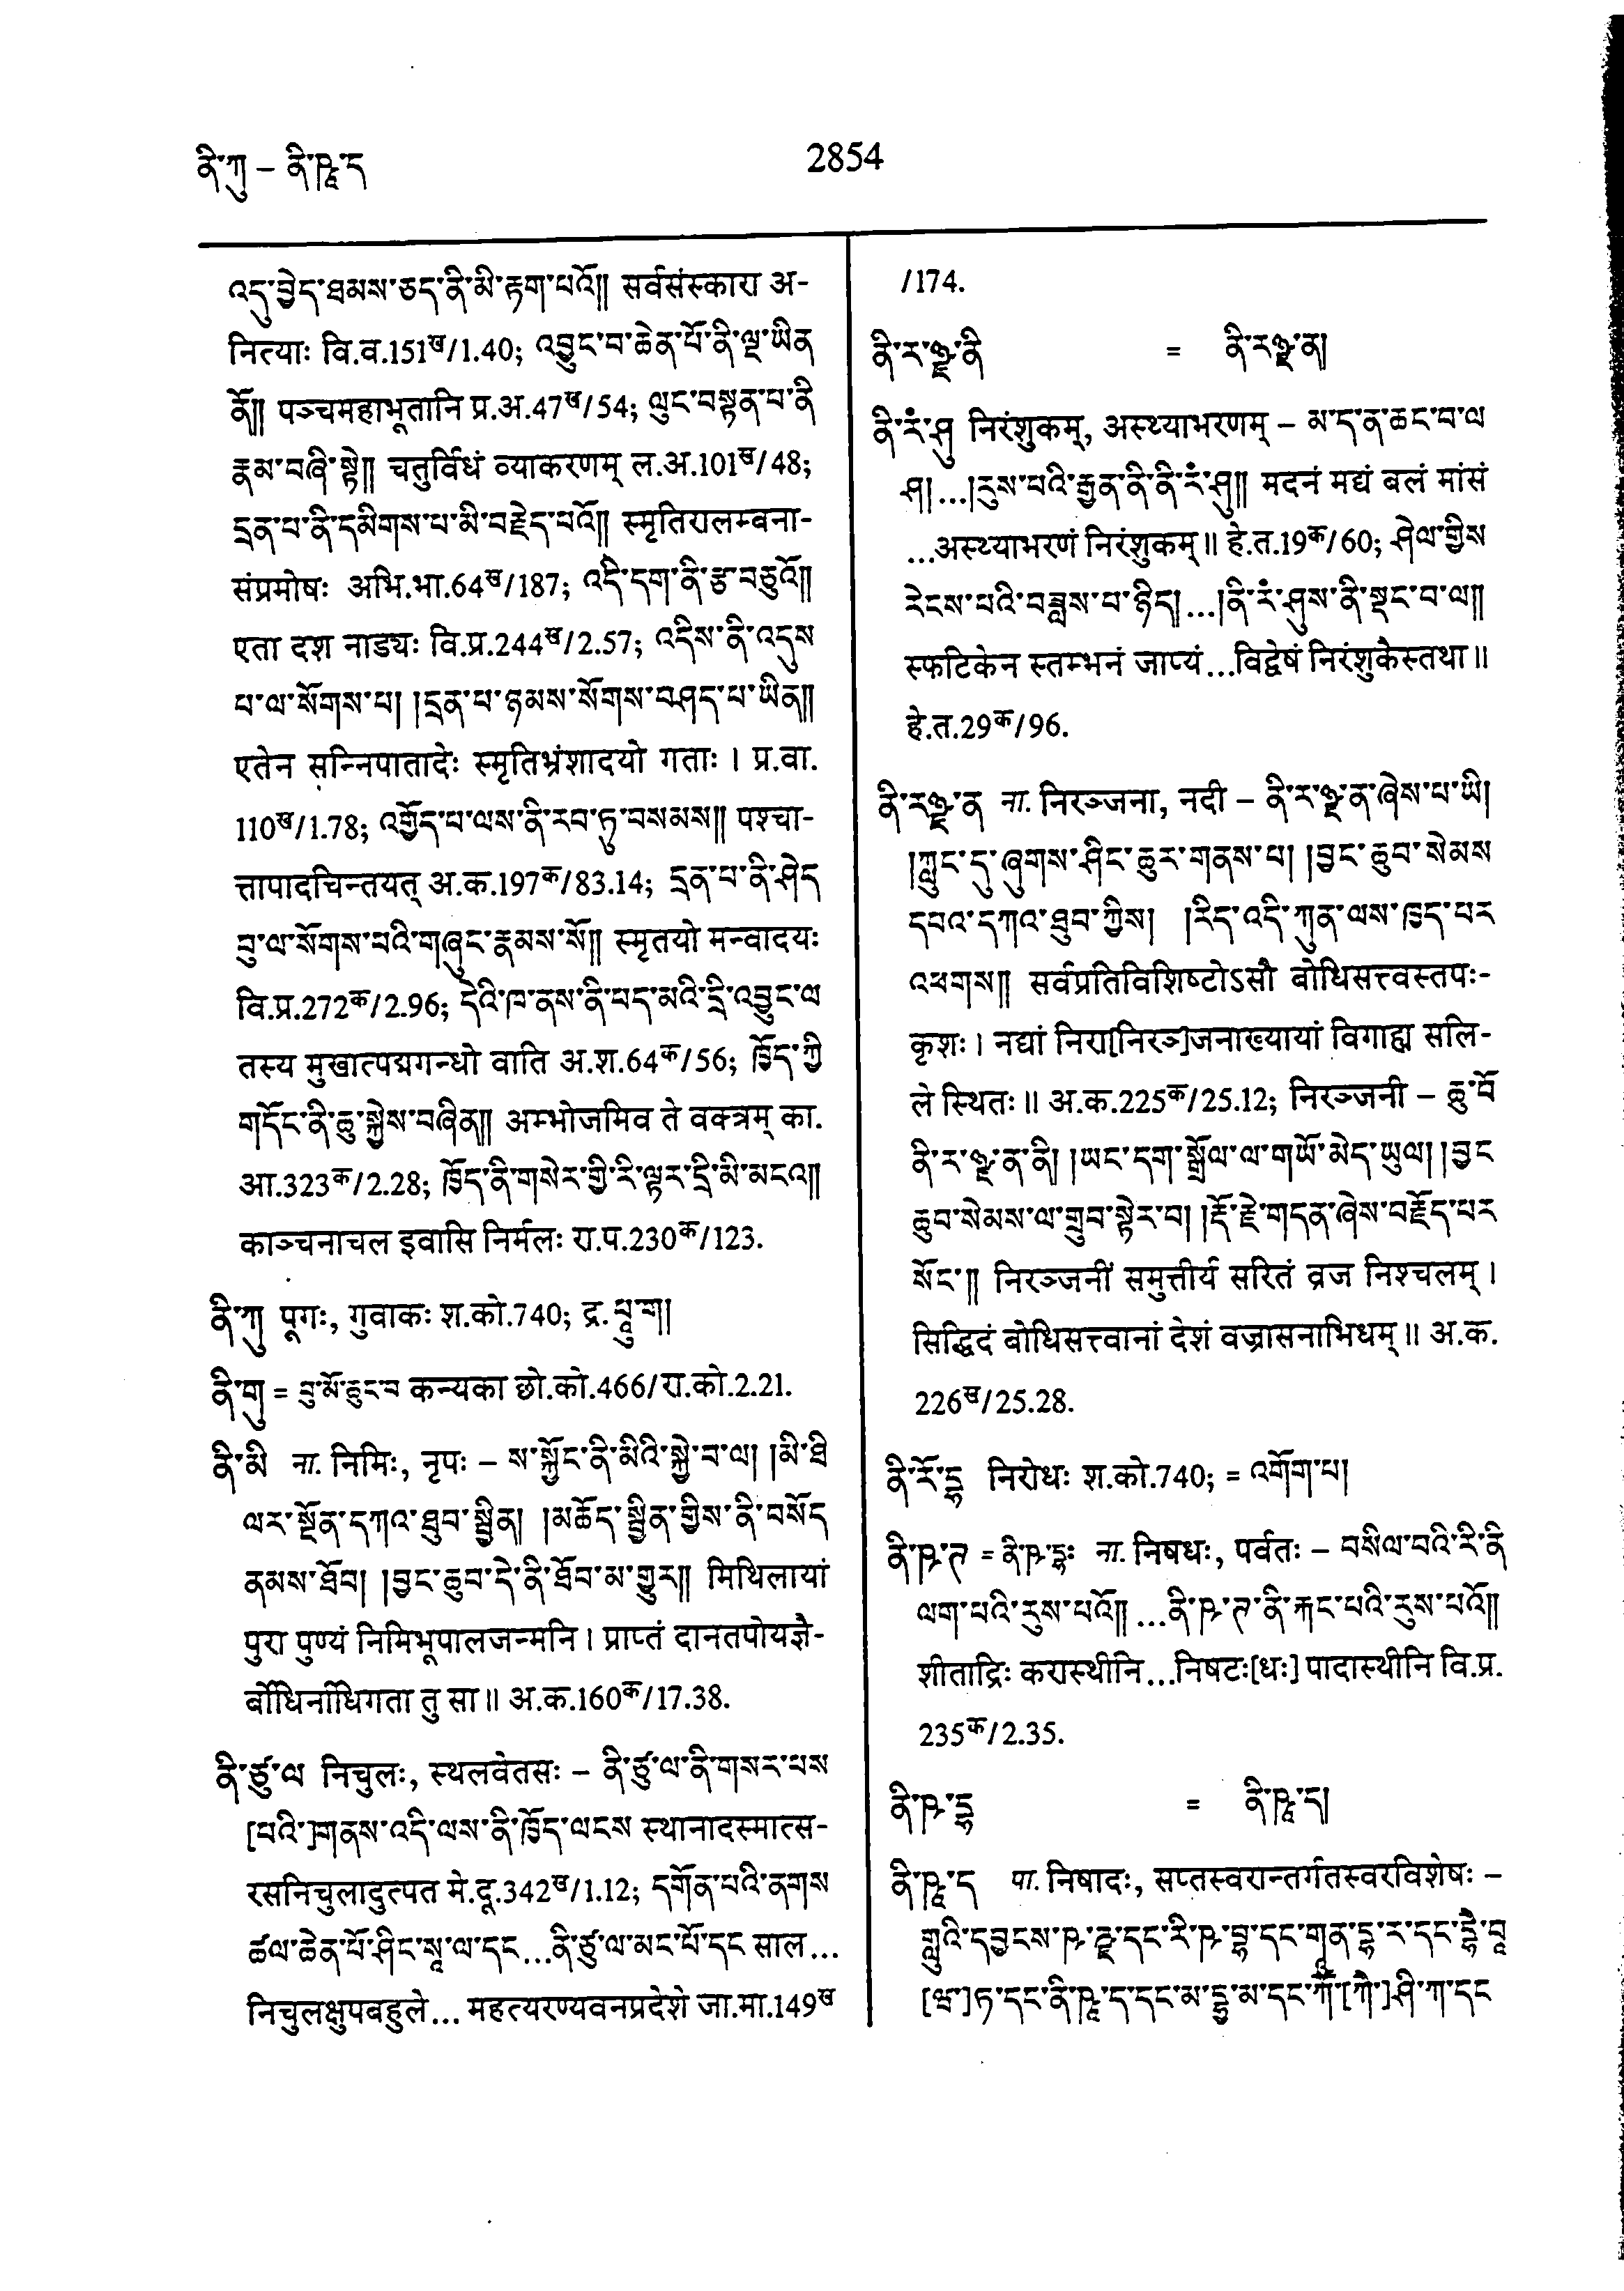 ནི་ཀུ – ནི་ཥཱ་ད
2854
འདུ་བྱེད་ཐམས་ཅད་ནི་མི་རྟག་པའོ༎ सर्वसंस्कारा अ-
नित्याः वि.व.151ख/1.40; འབྱུང་བ་ཆེན་པོ་ནི་ལྔ་ཡིན
ནོ༎ पञ्चमहाभूतानि प्र.अ.47ख/54; ལུང་བསྟན་པ་ནི
རྣམ་བཞི་སྟེ༎ चतुर्विधं व्याकरणम् ल.अ.101ख/48;
དྲན་པ་ནི་དམིགས་པ་མི་བརྗེད་པའོ༎ स्मृतिरालम्बना-
संप्रमोषः अभि.भा.64ख/187; འདི་དག་ནི་རྩ་བཅུའོ༎
एता दश नाड्यः वि.प्र.244ख/2.57; འདིས་ནི་འདུས
པ་ལ་སོགས་པ། །དྲན་པ་ཉམས་སོགས་བཤད་པ་ཡིན༎
एतेन सन्निपातादेः स्मृतिभ्रंशादयो गताः । प्र.वा.
110ख/1.78; འགྱོད་པ་ལས་ནི་རབ་ཏུ་བསམས༎ पश्चा-
त्तापादचिन्तयत् अ.क.197क/83.14; དྲན་པ་ནི་ཤེད
བུ་ལ་སོགས་པའི་གཞུང་རྣམས་སོ༎ स्मृतयो मन्वादयः
वि.प्र.272क/2.96; དེའི་ཁ་ནས་ནི་པད་མའི་དྲི་འབྱུང་ལ
तस्य मुखात्पद्मगन्धो वाति अ.श.64क/56; ཁྱོད་ཀྱི
གདོང་ནི་ཆུ་སྐྱེས་བཞིན༎ अम्भोजमिव ते वक्त्रम् का.
आ.323क/2.28; ཁྱོད་ནི་གསེར་གྱི་རི་ལྟར་དྲི་མི་མངའ༎
काञ्चनाचल इवासि निर्मलः रा.प.230क/123.
ནི་ཀུ पूगः, गुवाकः श.को.740; द्र. པཱུ་ག།
ནི་གུ = བུ་མོ་ཆུང་བ कन्यका छो.को.466/रा.को.2.21.
ནི་མི ना. निमिः, नृपः – ས་སྐྱོང་ནི་མིའི་སྐྱེ་བ་ལ། །མི་ཐི
ལར་སྔོན་དཀའ་ཐུབ་སྦྱིན། །མཆོད་སྦྱིན་གྱིས་ནི་བསོད
ནམས་ཐོབ། །བྱང་ཆུབ་དེ་ནི་ཐོབ་མ་གྱུར༎ मिथिलायां
पुरा पुण्यं निमिभूपालजन्मनि । प्राप्तं दानतपोयज्ञै-
र्बोधिर्नाधिगता तु सा ॥ अ.क.160क/17.38.
ནི་ཙུ་ལ निचुलः, स्थलवेतसः – ནི་ཙུ་ལ་ནི་གསར་པས
[པའི་]གནས་འདི་ལས་ནི་ཁྱོད་ལངས स्थानादस्मात्स-
रसनिचुलादुत्पत मे.दू.342ख/1.12; དགོན་པའི་ནགས
ཚལ་ཆེན་པོ་ཤིང་སཱ་ལ་དང…ནི་ཙུ་ལ་མང་པོ་དང साल…
निचुलक्षुपबहुले… महत्यरण्यवनप्रदेशे जा.मा.149ख
/174.
ནི་ར་ཉྫ་ནི = ནི་རཉྫ་ན།
ནི་རཾ་ཤུ निरंशुकम्, अस्थ्याभरणम् – མ་ད་ན་ཆང་བ་ལ
ཤ།…།རུས་པའི་རྒྱན་ནི་ནི་རཾ་ཤུ༎ मदनं मद्यं बलं मांसं
…अस्थ्याभरणं निरंशुकम् ॥ हे.त.19क/60; ཤེལ་གྱིས
རེངས་པའི་བཟླས་པ་ཉིད།…།ནི་རཾ་ཤུས་ནི་སྡང་བ་ལ༎
स्फटिकेन स्तम्भनं जाप्यं…विद्वेषं निरंशुकैस्तथा ॥
हे.त.29क/96.
ནི་རཉྫ་ན ना. निरञ्जना, नदी – ནི་ར་ཉྫ་ན་ཞེས་པ་ཡི།
།ཀླུང་དུ་ཞུགས་ཤིང་ཆུར་གནས་པ། །བྱང་ཆུབ་སེམས
དཔའ་དཀའ་ཐུབ་ཀྱིས། །རིད་འདི་ཀུན་ལས་ཁྱད་པར
འཕགས༎ सर्वप्रतिविशिष्टोऽसौ बोधिसत्त्वस्तपः-
कृशः । नद्यां निरा[निरञ्]जनाख्यायां विगाह्य सलि-
ले स्थितः ॥ अ.क.225क/25.12; निरञ्जनी – ཆུ་བོ
ནི་ར་ཉྫ་ན་ནི། །ཡང་དག་སྒྲོལ་ལ་གཡོ་མེད་ཡུལ། །བྱང
ཆུབ་སེམས་ལ་གྲུབ་སྟེར་བ། །རྡོ་རྗེ་གདན་ཞེས་བརྗོད་པར
སོང་༎ निरञ्जनीं समुत्तीर्य सरितं व्रज निश्चलम् ।
सिद्धिदं बोधिसत्त्वानां देशं वज्रासनाभिधम् ॥ अ.क.
226ख/25.28.
ནི་རོ་དྷ निरोधः श.को.740; = འགོག་པ།
ནི་ཥ་ཊ = ནི་ཥ་དྷཿ ना. निषधः, पर्वतः – བསིལ་བའི་རི་ནི
ལག་པའི་རུས་པའོ༎ …ནི་ཥ་ཊ་ནི་རྐང་པའི་རུས་པའོ༎
शीताद्रिः करास्थीनि…निषटः[धः] पादास्थीनि वि.प्र.
235क/2.35.
ནི་ཥ་དྷ = ནི་ཥཱ་ད།
ནི་ཥཱ་ད पा. निषादः, सप्तस्वरान्तर्गतस्वरविशेषः –
གླུའི་དབྱངས་ཥ་ཌྫ་དང་རི་ཥ་བྷ་དང་གཱན་དྷ་ར་དང་དྷཻ་བཱ
[ཝ་]ཏ་དང་ནི་ཥཱ་ད་དང་མ་དྷྱ་མ་དང་ཀཽ་[ཀཻ་]ཤི་ཀ་དང